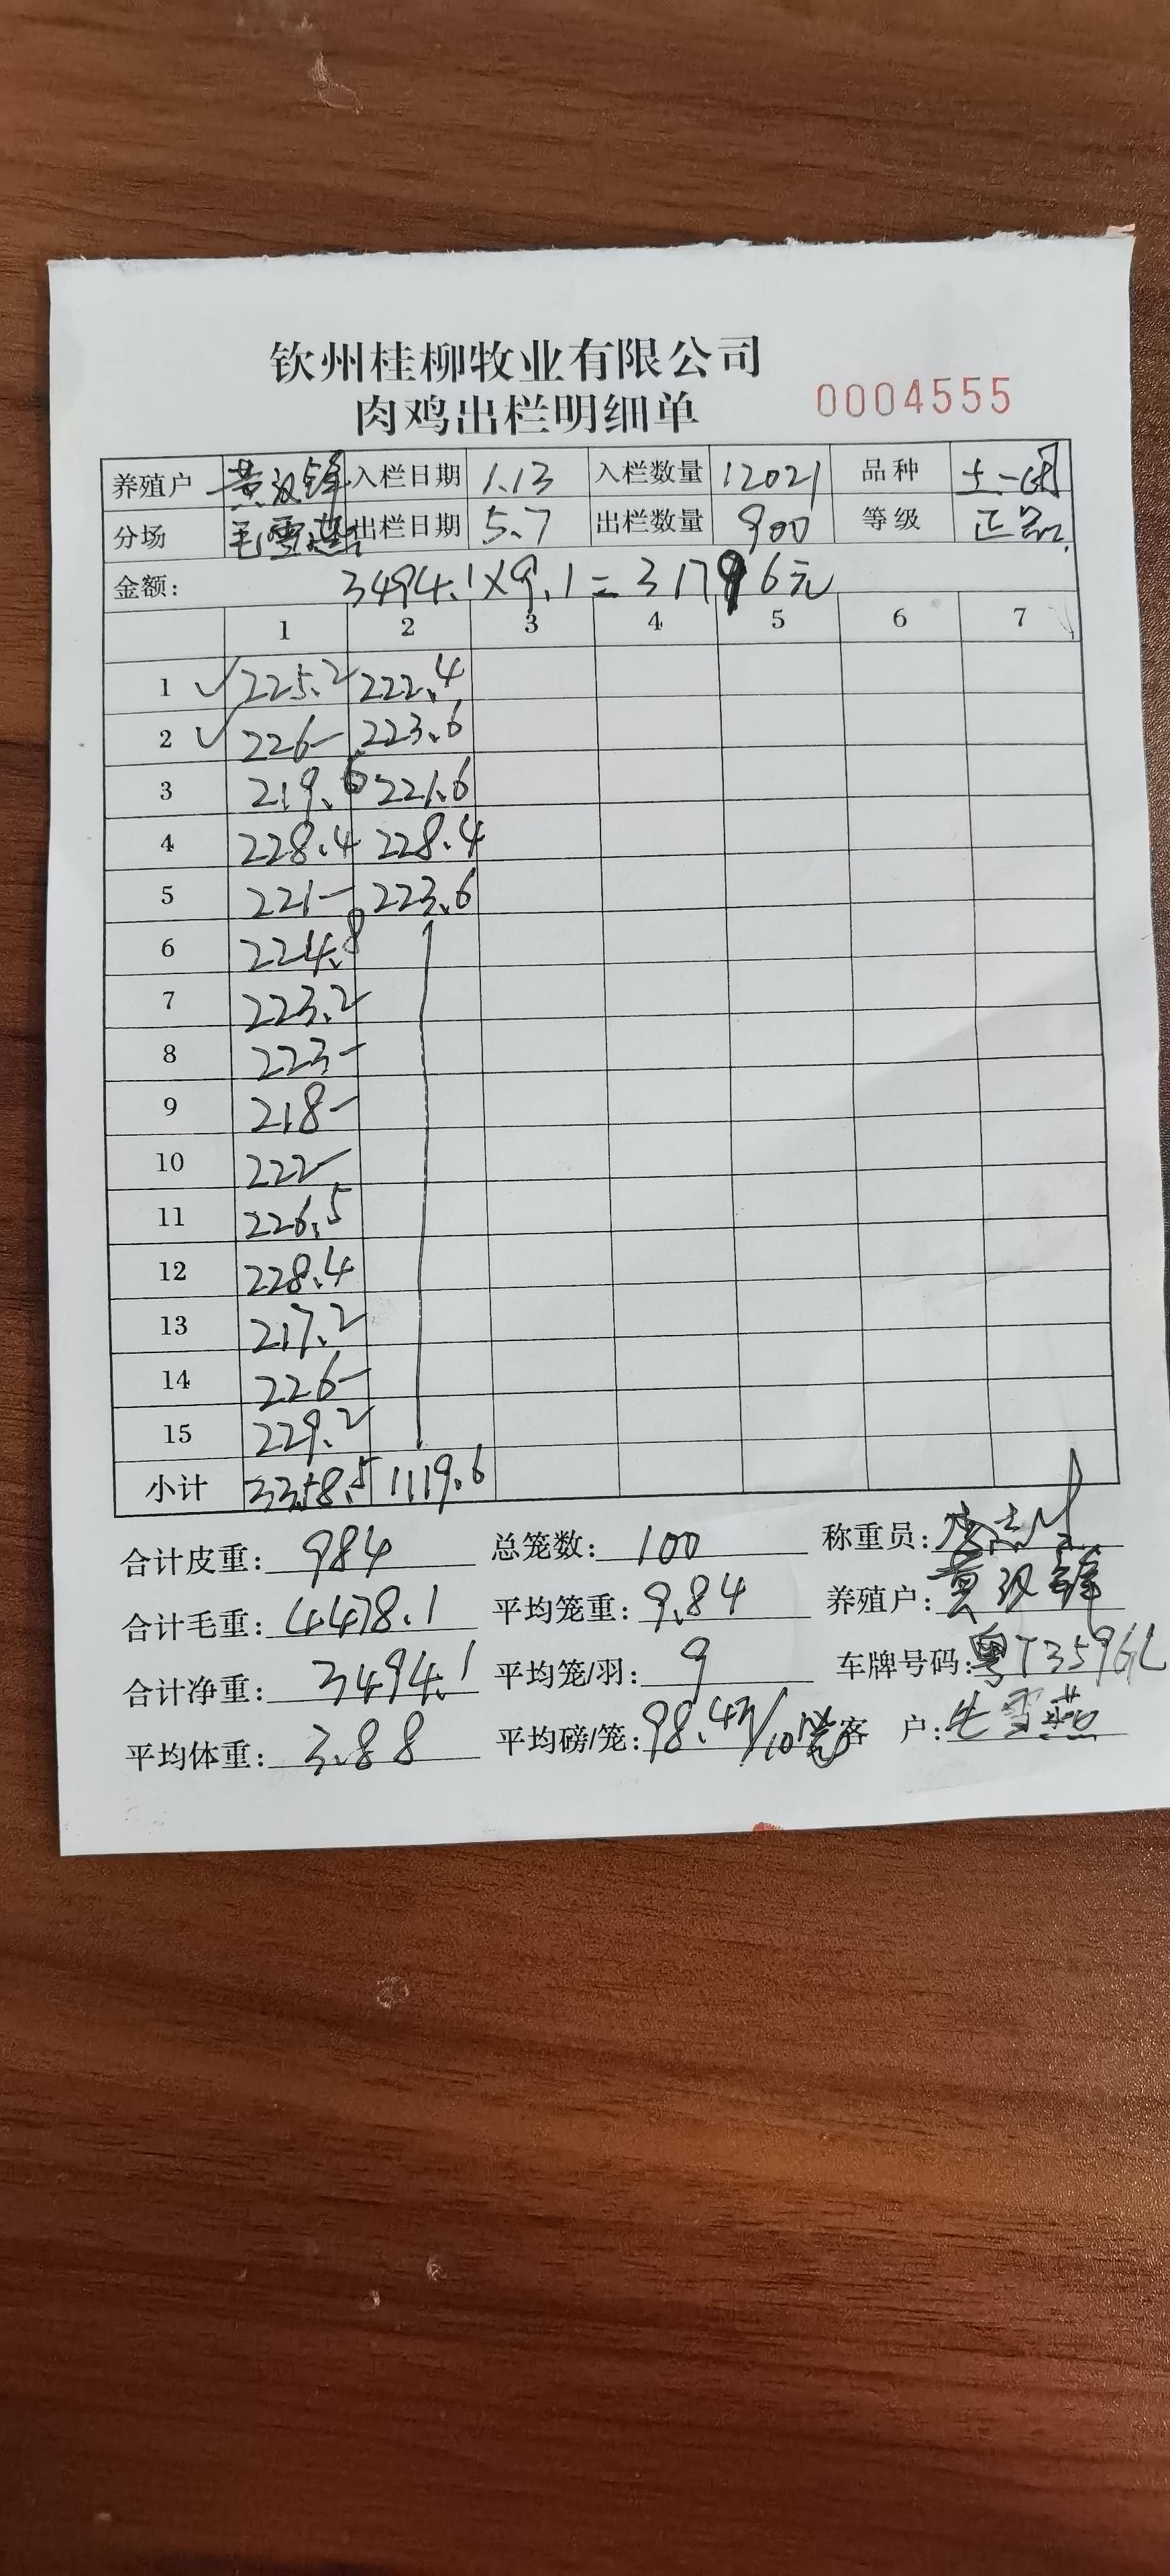 钦州桂柳牧业有限公司
肉鸡出栏明细单 0004555
养殖户 黄汉锋 入栏日期 1.13 入栏数量 12021 品种 土一
分场 毛雪燕 出栏日期 5.7 出栏数量 900 等级 正品
金额: 3494.1×9.1=31796元
1 2 3 4 5 6 7
1 225.2 222.4
2 226- 223.6
3 219.6 221.6
4 228.4 228.4
5 221- 223.6
6 224.8
7 223.2
8 223-
9 218-
10 222-
11 226.5
12 228.4
13 217.2
14 226-
15 229.2
小计 3358.5 1119.6
合计皮重: 984 总笼数: 100 称重员:
合计毛重: 4478.1 平均笼重: 9.84 养殖户: 黄汉锋
合计净重: 3494.1 平均笼/羽: 9 车牌号码: 粤T359GL
平均体重: 3.88 平均磅/笼: 98.4斤/10笼 客 户: 毛雪燕